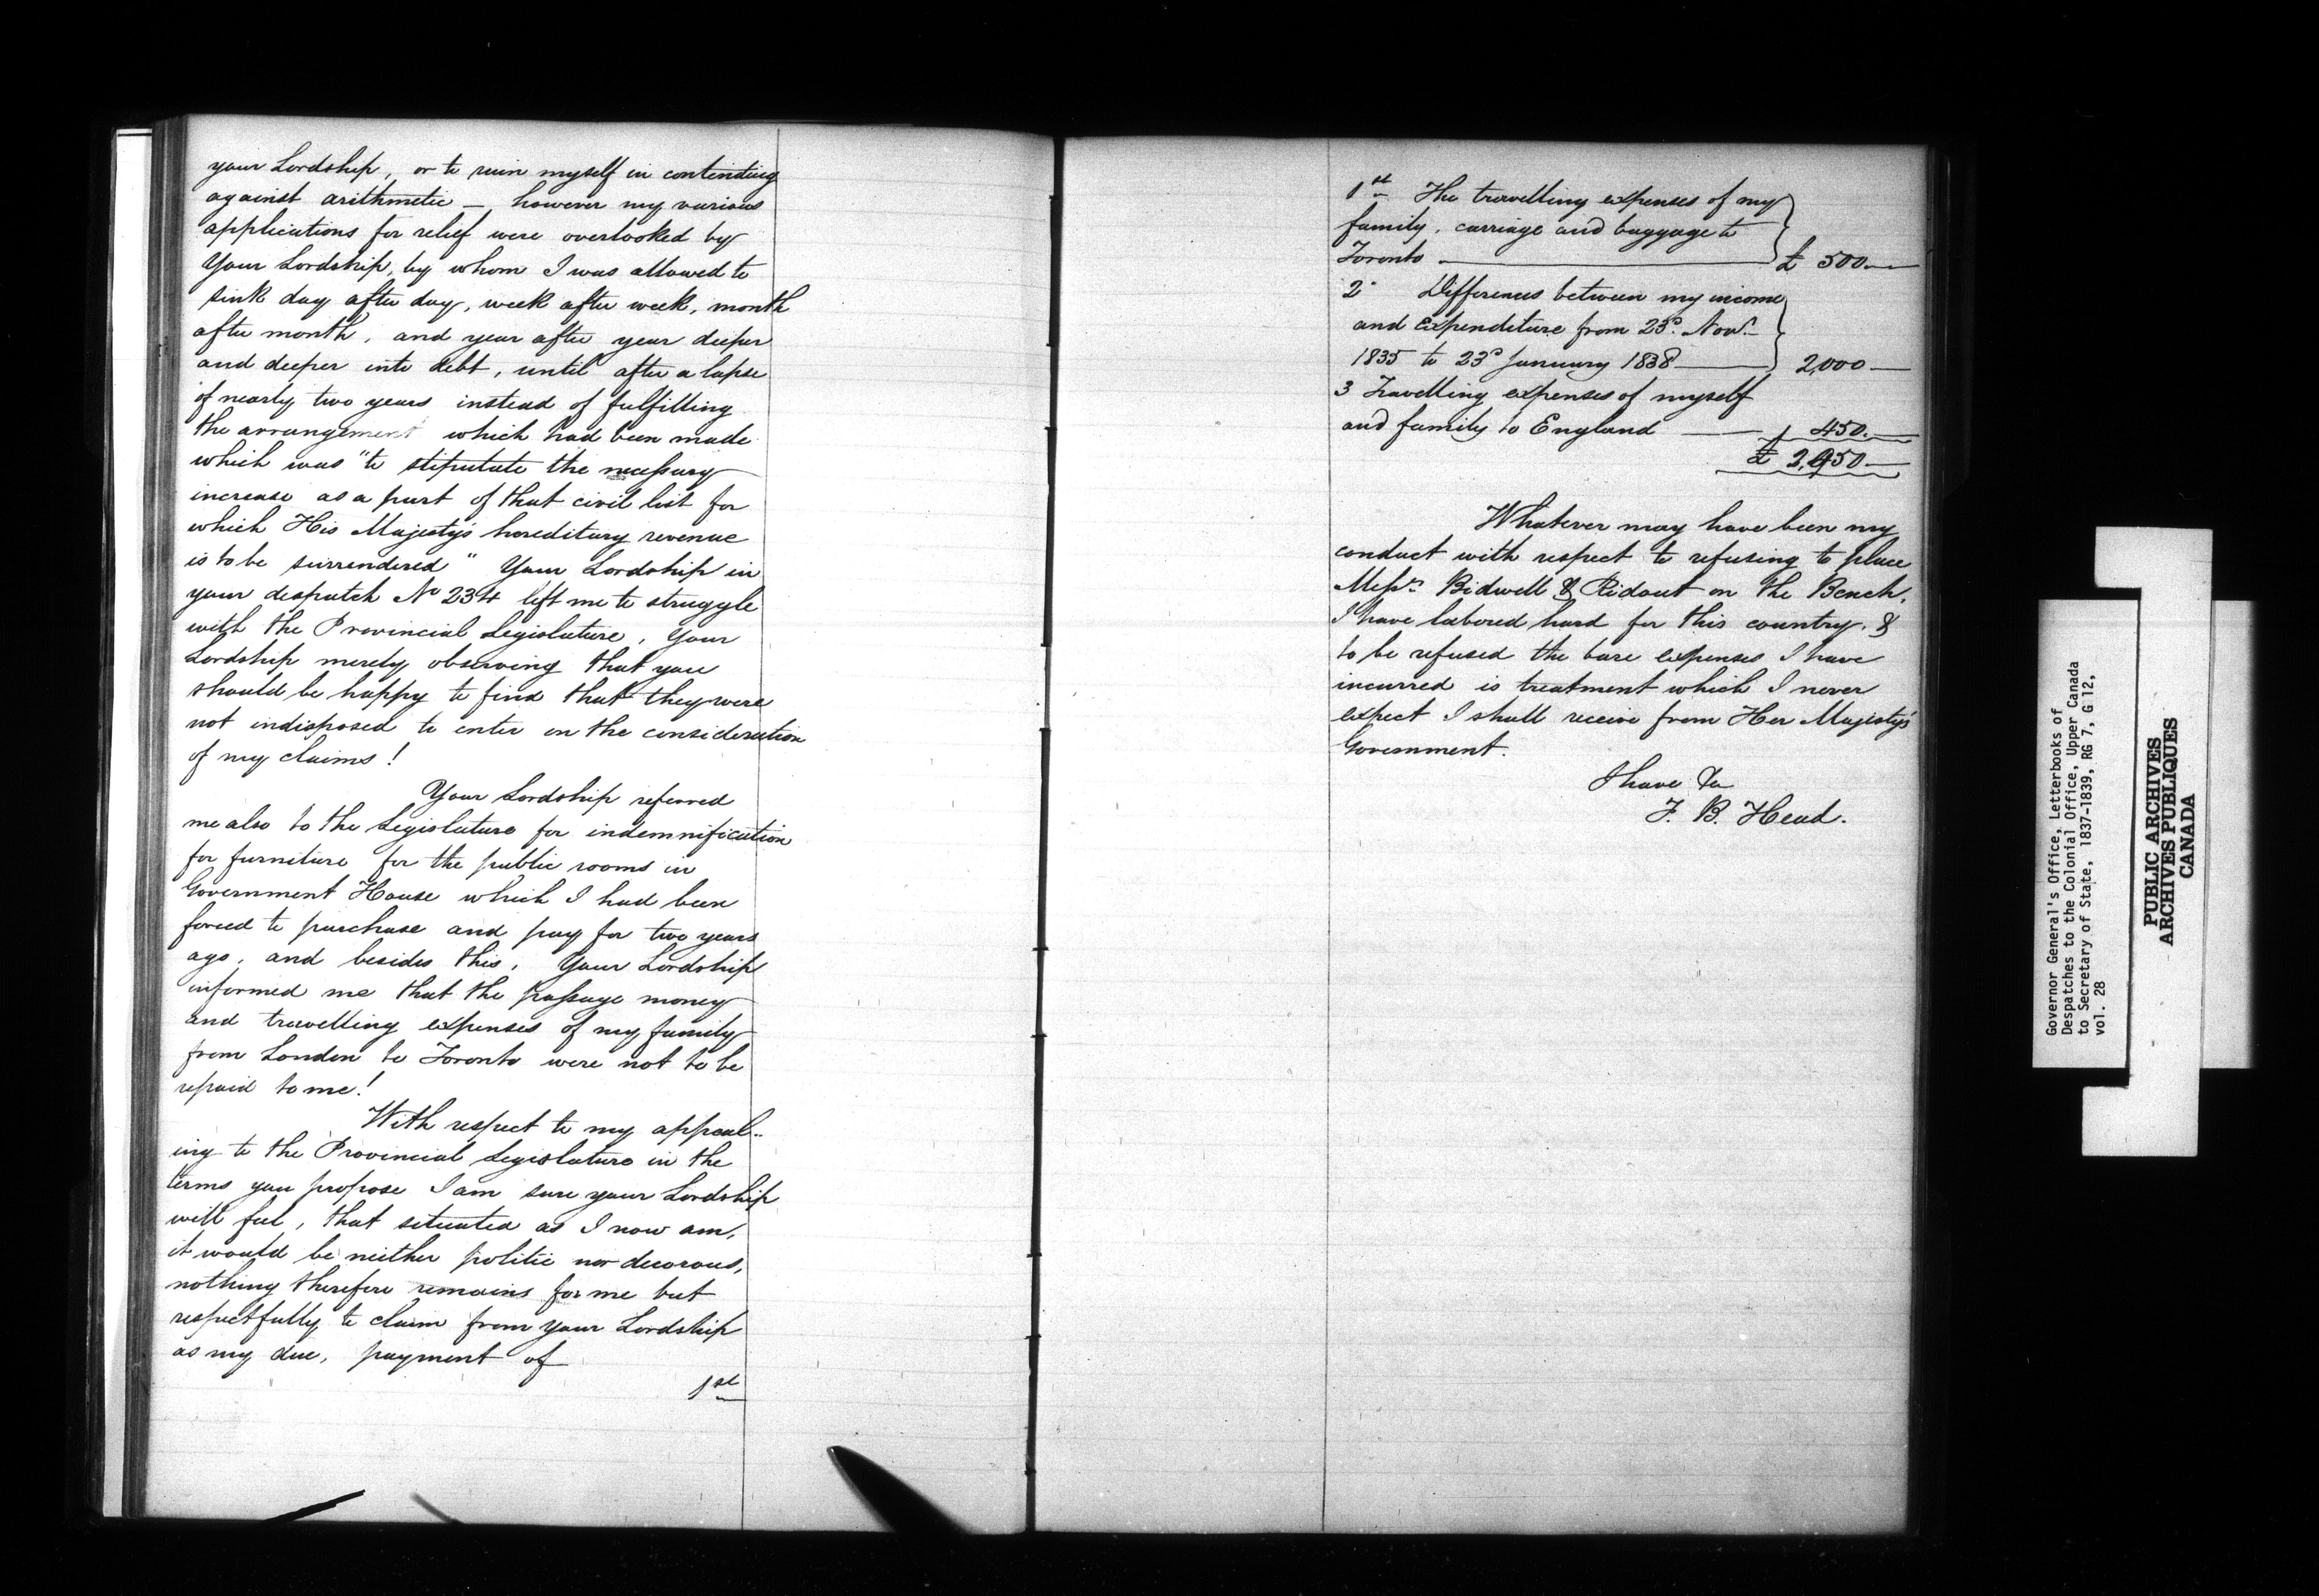 your Lordship, or to ruin myself in contending
against arithmetic — however my various
applications for relief were overlooked by
Your Lordship, by whom I was allowed to
sink day after day, week after week, month
after month, and year after year deeper
and deeper into debt, until after a lapse
of nearly two years instead of fulfilling
the arrangement which had been made
which was "to stipulate the necessary
increase as a part of that civil list for
which His Majesty's hereditary revenue
is to be surrendered" Your Lordship in
your despatch No 234 left me to struggle
with the Provincial Legislature, Your
Lordship merely observing that you
should be happy to find that they were
not indisposed to enter on the consideration
of my claims!
Your Lordship referred
me also to the Legislature for indemnification
for furniture for the public rooms in
Government House which I had been
forced to purchase and pay for two years
ago, and besides this, Your Lordship
informed me that the passage money
and travelling expenses of my family
from London to Toronto were not to be
repaid to me!
With respect to my appeal-
ing to the Provincial Legislature in the
terms you propose I am sure your Lordship
will feel, that situated as I now am,
it would be neither politic nor decorous,
nothing therefore remains for me but
respectfully to claim from your Lordship
as my due, payment of
1st
1st The travelling expenses of my
family, carriage and baggage to
Toronto — £ 500—
2 Difference between my income
and expenditure from 23d. Novr.
1835 to 23d January 1838 — 2,000—
3 Travelling expenses of myself
and family to England — 450.—
£ 2,950—
Whatever may have been my
conduct with respect to refusing to place
Messrs Bidwell & Ridout on the Bench,
I have labored hard for this country, &
to be refused the bare expenses I have
incurred is treatment which I never
expect I shall receive from Her Majesty's
Government.
I have &c
F. B. Head.
Governor General's Office, Letterbooks of
Despatches to the Colonial Office, Upper Canada
to Secretary of State, 1837-1839, RG 7, G 12,
vol. 28
PUBLIC ARCHIVES
ARCHIVES PUBLIQUES
CANADA